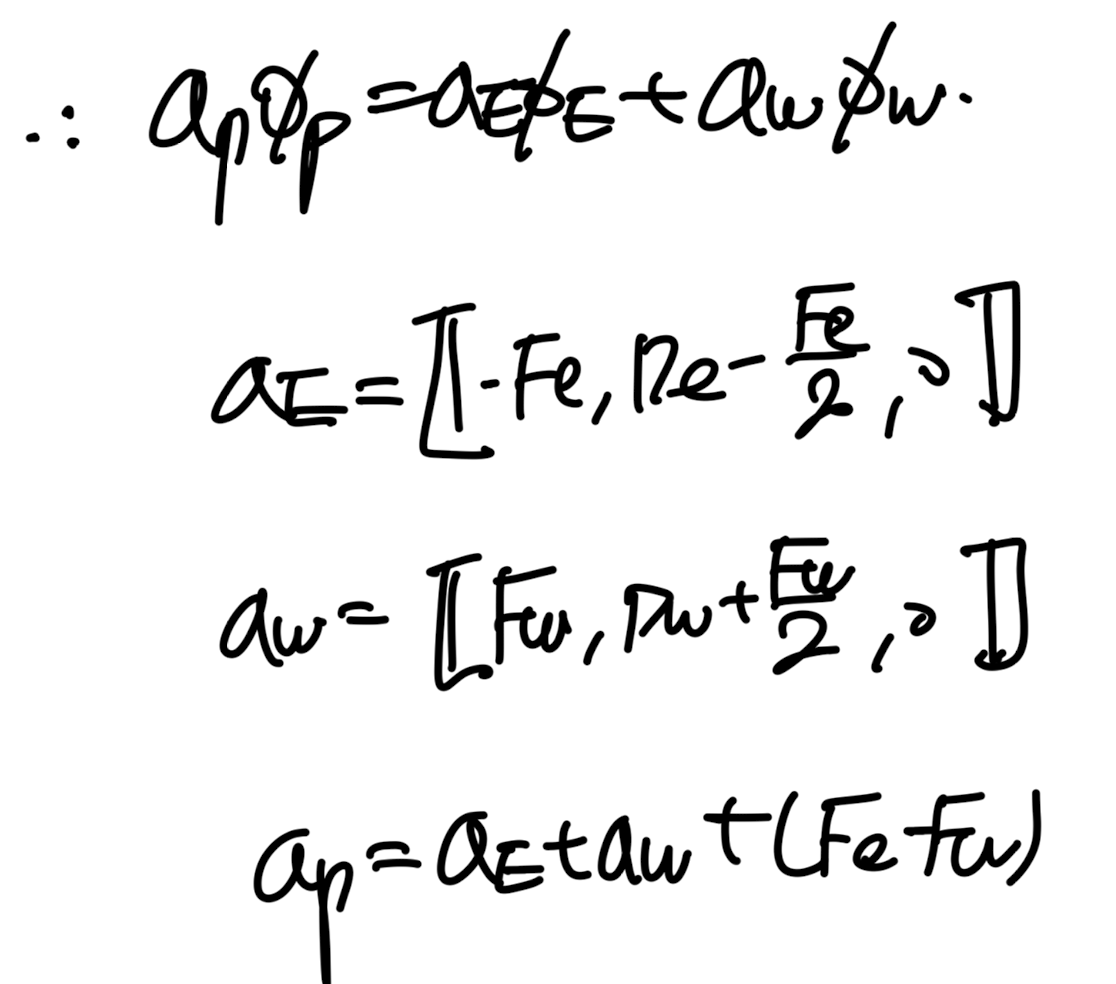 ∴ aₚϕₚ = a_E ϕ_E + a_w ϕ_w.
a_E = ⟦-Fe, De - Fe/2, 0⟧
a_w = ⟦Fw, Dw + Fw/2, 0⟧
aₚ = a_E + a_w + (Fe - Fw)